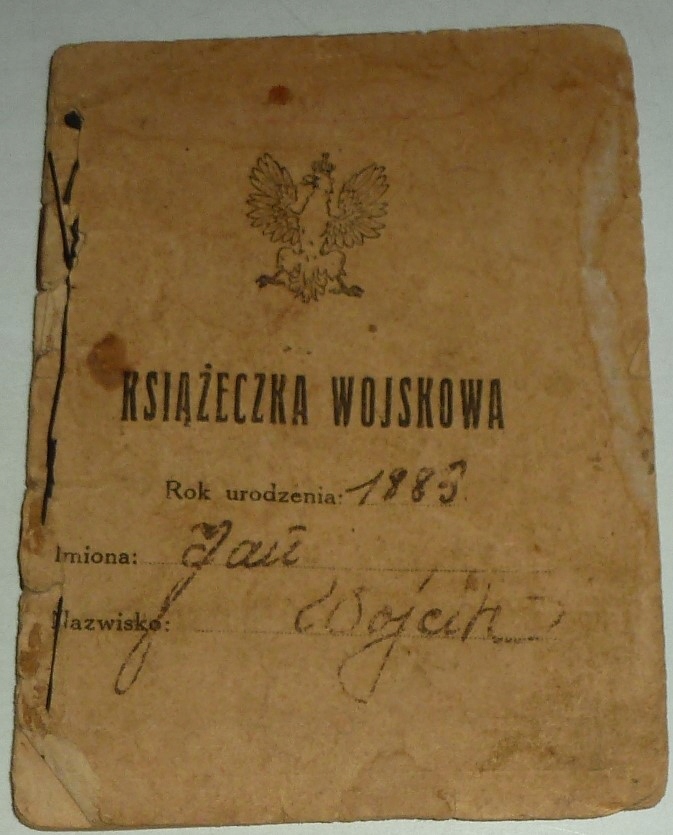 KSIĄŻECZKA WOJSKOWA
Rok urodzenia: 1883
Imiona: Jan
Nazwisko: Wojcik